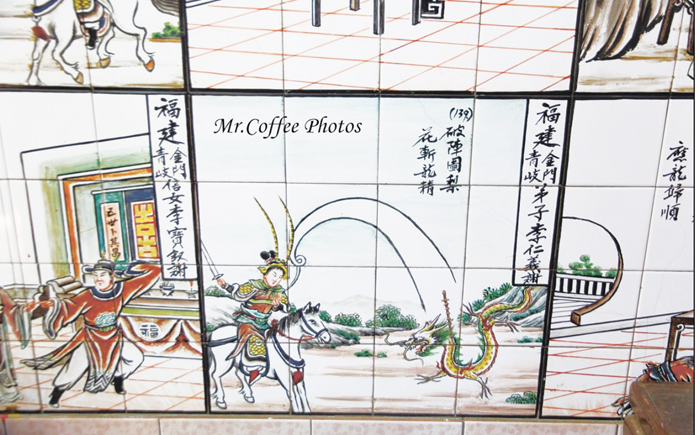 福建金門
青岐信女李寶釵謝
Mr.Coffee Photos
(139)
破陣圖梨
花斬龍精
福建金門
青岐弟子李仁義謝
應龍歸順
福